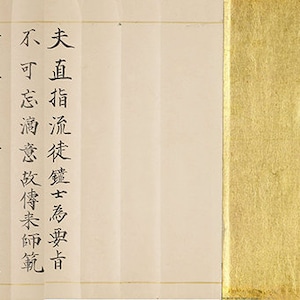 夫直指流徒鑓士為要旨
不可忘滴意故傳来師範